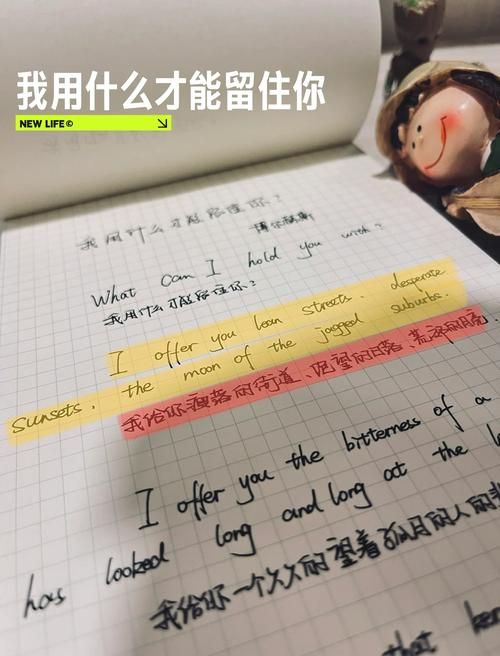 我用什么才能留住你
NEW LIFE©
我用什么才能留住你?
博尔赫斯
What can I hold you with?
我用什么才能留住你?
I offer you lean streets. desperate
sunsets. the moon of the jagged suburbs.
我给你瘦落的街道、绝望的日落、荒郊的月亮.
I offer you the bitterness of a
has looked long and long at the
我给你一个久久的望着孤月的人的
that